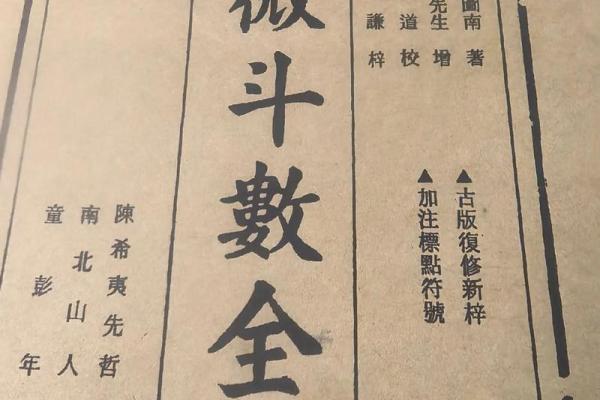 圖南著
先生增
道校
謙梓
▲古版復修新梓
▲加注標點符號
微斗數全
陳希夷先哲
南北山人
童彭年